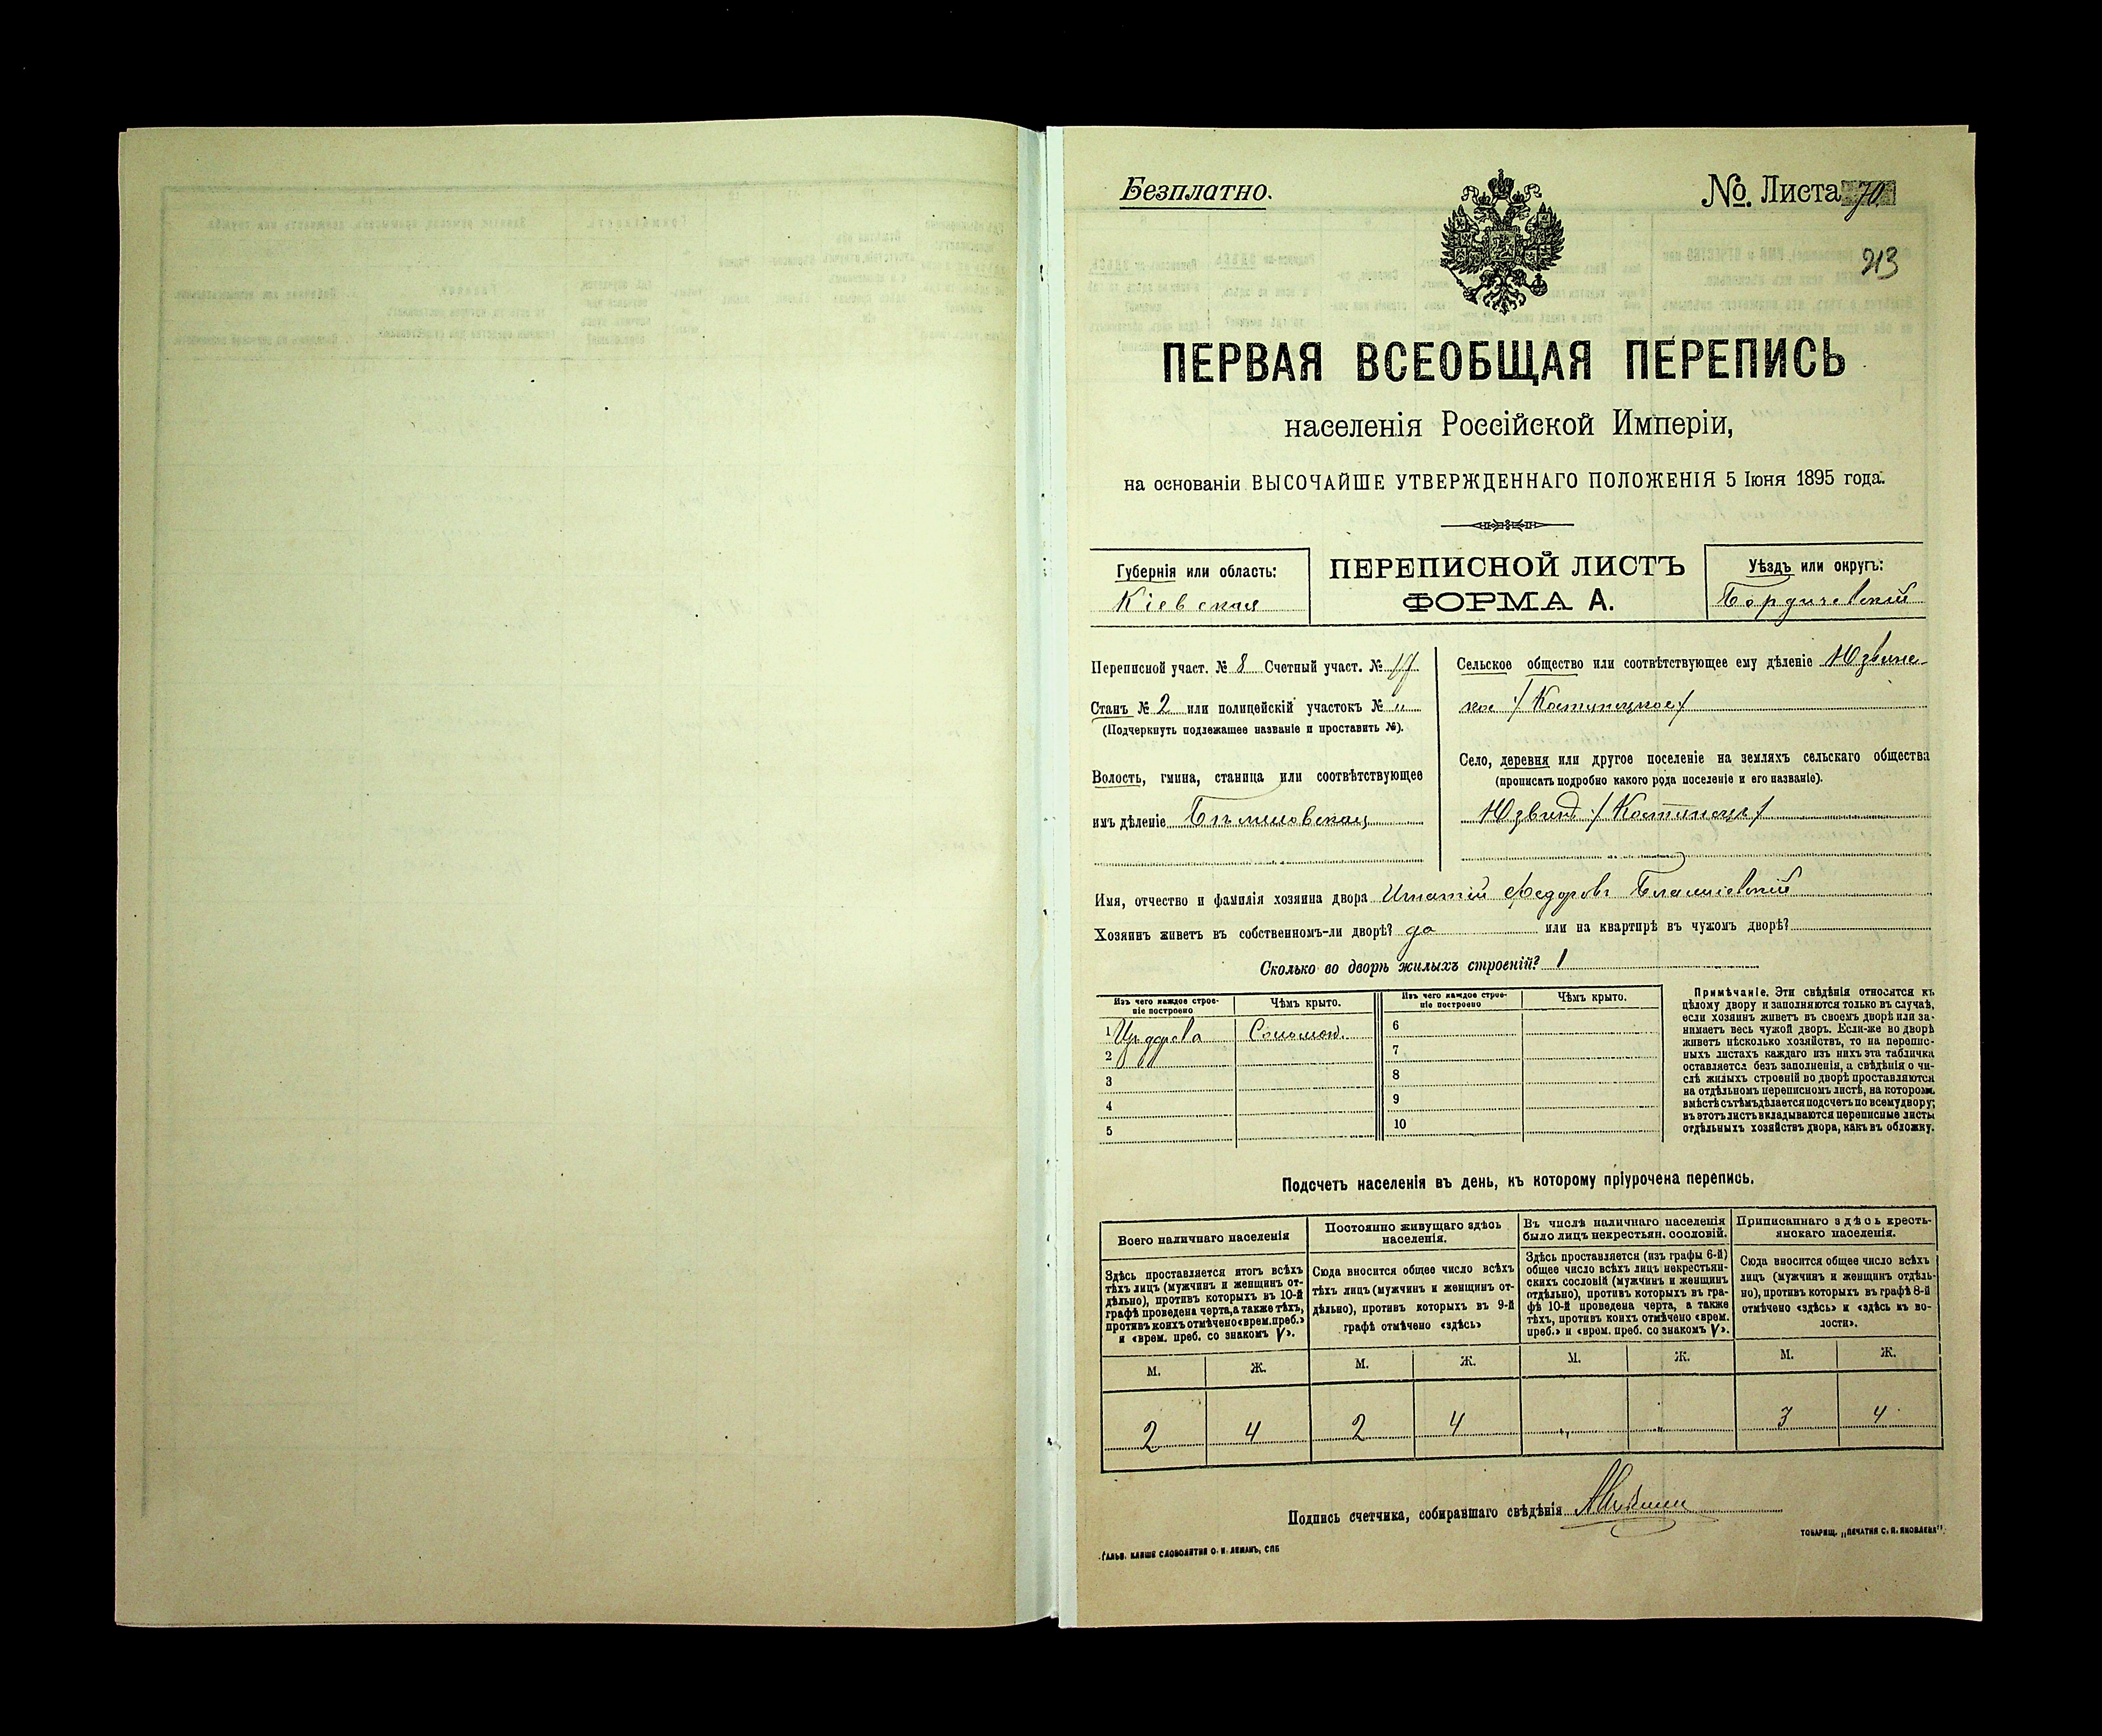 Безплатно.
№. Листа 70.
213
ПЕРВАЯ ВСЕОБЩАЯ ПЕРЕПИСЬ
населенія Россійской Имперіи,
на основаніи ВЫСОЧАЙШЕ УТВЕРЖДЕННАГО ПОЛОЖЕНІЯ 5 Іюня 1895 года.
Губернія или область:
Кіевская
ПЕРЕПИСНОЙ ЛИСТЪ
ФОРМА А.
Уѣздъ или округъ:
Бердичевскій
Переписной участ. № 8 Счетный участ. №
Станъ № 2 или полицейскій участокъ № "
(Подчеркнуть подлежащее названіе и проставить №).
Волость, гмина, станица или соотвѣтствующее
имъ дѣленіе
Сельское общество или соотвѣтствующее ему дѣленіе Юзвин-
ское /Костинецкое/
Село, деревня или другое поселеніе на земляхъ сельскаго общества
(прописать подробно какого рода поселеніе и его названіе).
Юзвинъ /Костинецъ/
Имя, отчество и фамилія хозяина двора Игнатій Федоровъ
Хозяинъ живетъ въ собственномъ-ли дворѣ? да или на квартирѣ въ чужомъ дворѣ?
Сколько во дворѣ жилыхъ строеній? 1
Изъ чего каждое строе-
ніе построено
Чѣмъ крыто.
Изъ чего каждое строе-
ніе построено
Чѣмъ крыто.
1 Изъ дерева Соломой. 6
2 7
3 8
4 9
5 10
Примѣчаніе. Эти свѣдѣнія относятся къ
цѣлому двору и заполняются только въ случаѣ,
если хозяинъ живетъ въ своемъ дворѣ или за-
нимаетъ весь чужой дворъ. Если-же во дворѣ
живетъ нѣсколько хозяйствъ, то на перепис-
ныхъ листахъ каждаго изъ нихъ эта табличка
оставляется безъ заполненія, а свѣдѣнія о чи-
слѣ жилыхъ строеній во дворѣ проставляются
на отдѣльномъ переписномъ листѣ, на которомъ
вмѣстѣ съ тѣмъ дѣлается подсчетъ по всему двору;
въ этотъ листъ вкладываются переписные листы
отдѣльныхъ хозяйствъ двора, какъ въ обложку.
Подсчетъ населенія въ день, къ которому пріурочена перепись.
Всего наличнаго населенія
Здѣсь проставляется итогъ всѣхъ
тѣхъ лицъ (мужчинъ и женщинъ от-
дѣльно), противъ которыхъ въ 10-й
графѣ проведена черта, а также тѣхъ,
противъ коихъ отмѣчено «врем. преб.»
и «врем. преб. со знакомъ V».
Постоянно живущаго здѣсь
населенія.
Сюда вносится общее число всѣхъ
тѣхъ лицъ (мужчинъ и женщинъ от-
дѣльно), противъ которыхъ въ 9-й
графѣ отмѣчено «здѣсь»
Въ числѣ наличнаго населенія
было лицъ некрестьян. сословій.
Здѣсь проставляется (изъ графы 6-й)
общее число всѣхъ лицъ некрестьян-
скихъ сословій (мужчинъ и женщинъ
отдѣльно), противъ которыхъ въ гра-
фѣ 10-й проведена черта, а также
тѣхъ, противъ коихъ отмѣчено «врем.
преб.» и «врем. преб. со знакомъ V».
Приписаннаго здѣсь кресть-
янскаго населенія.
Сюда вносится общее число всѣхъ
лицъ (мужчинъ и женщинъ отдѣль-
но), противъ которыхъ въ графѣ 8-й
отмѣчено «здѣсь» и «здѣсь въ во-
лости».
М. Ж. М. Ж. М. Ж. М. Ж.
2 4 2 4 " " 3 4
Подпись счетчика, собиравшаго свѣдѣнія
ГАЛЬВ. КЛИШЕ СЛОВОЛИТНИ О. И. ЛЕМАНЪ, СПБ
ТОВАРИЩ. „ПЕЧАТНЯ С. П. ЯКОВЛЕВА"